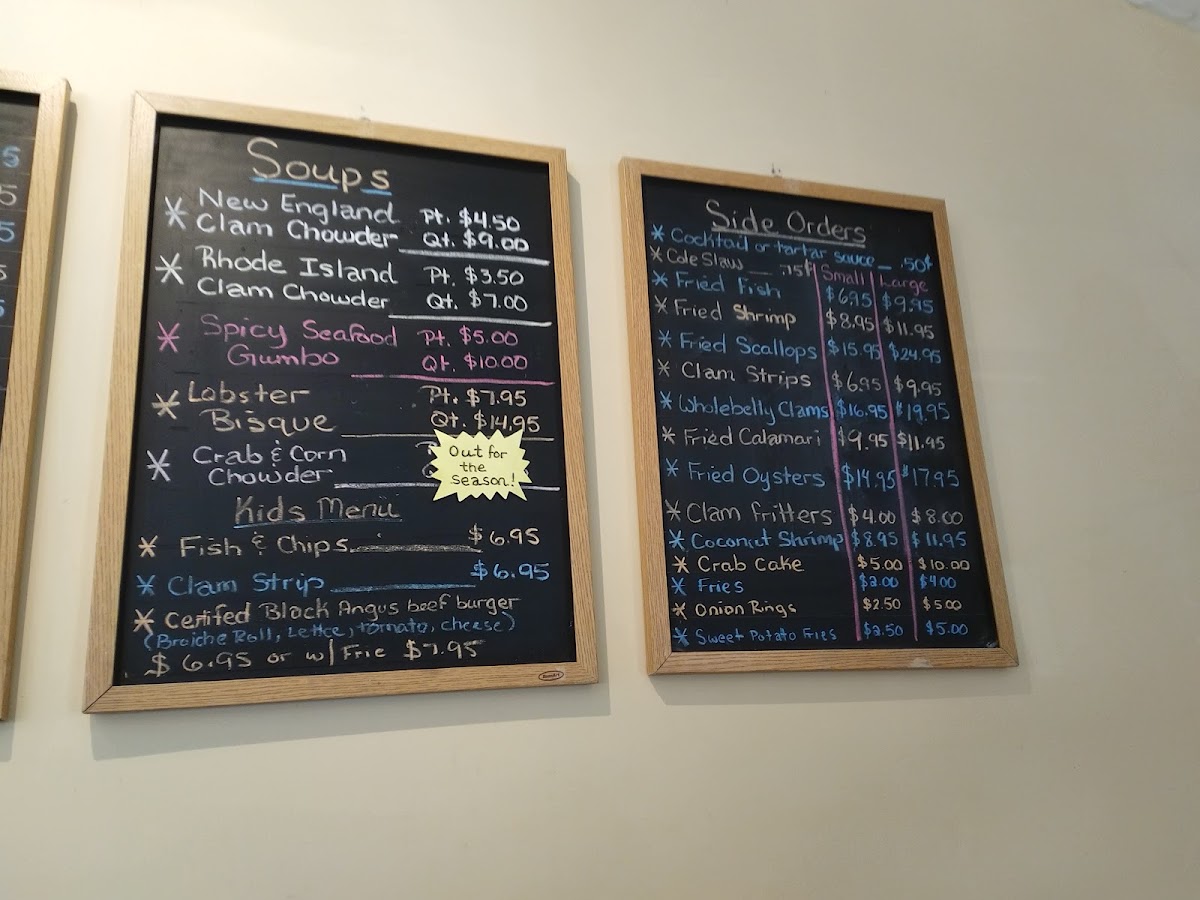 5
5
5
5
5
Soups
* New England Pt. $4.50
Clam Chowder Qt. $9.00
* Rhode Island Pt. $3.50
Clam Chowder Qt. $7.00
* Spicy Seafood Pt. $5.00
Gumbo Qt. $10.00
* Lobster Pt. $7.95
Bisque Qt. $14.95
* Crab & Corn
Chowder
Out for
the
Season!
Kids Menu
* Fish & Chips $6.95
* Clam Strip $6.95
* Certifed Black Angus beef burger
(Braiche Roll, Lettce, tomato, cheese)
$6.95 or w/ Frie $7.95
Side Orders
* Cocktail or tartar sauce .50¢
* Cole Slaw .75¢ Small Large
* Fried Fish $6.95 $9.95
* Fried Shrimp $8.95 $11.95
* Fried Scallops $15.95 $24.95
* Clam Strips $6.95 $9.95
* Wholebelly Clams $16.95 $19.95
* Fried Calamari $9.95 $11.95
* Fried Oysters $14.95 $17.95
* Clam fritters $4.00 $8.00
* Coconut Shrimp $8.95 $11.95
* Crab Cake $5.00 $10.00
* Fries $2.00 $4.00
* Onion Rings $2.50 $5.00
* Sweet Potato Fries $2.50 $5.00